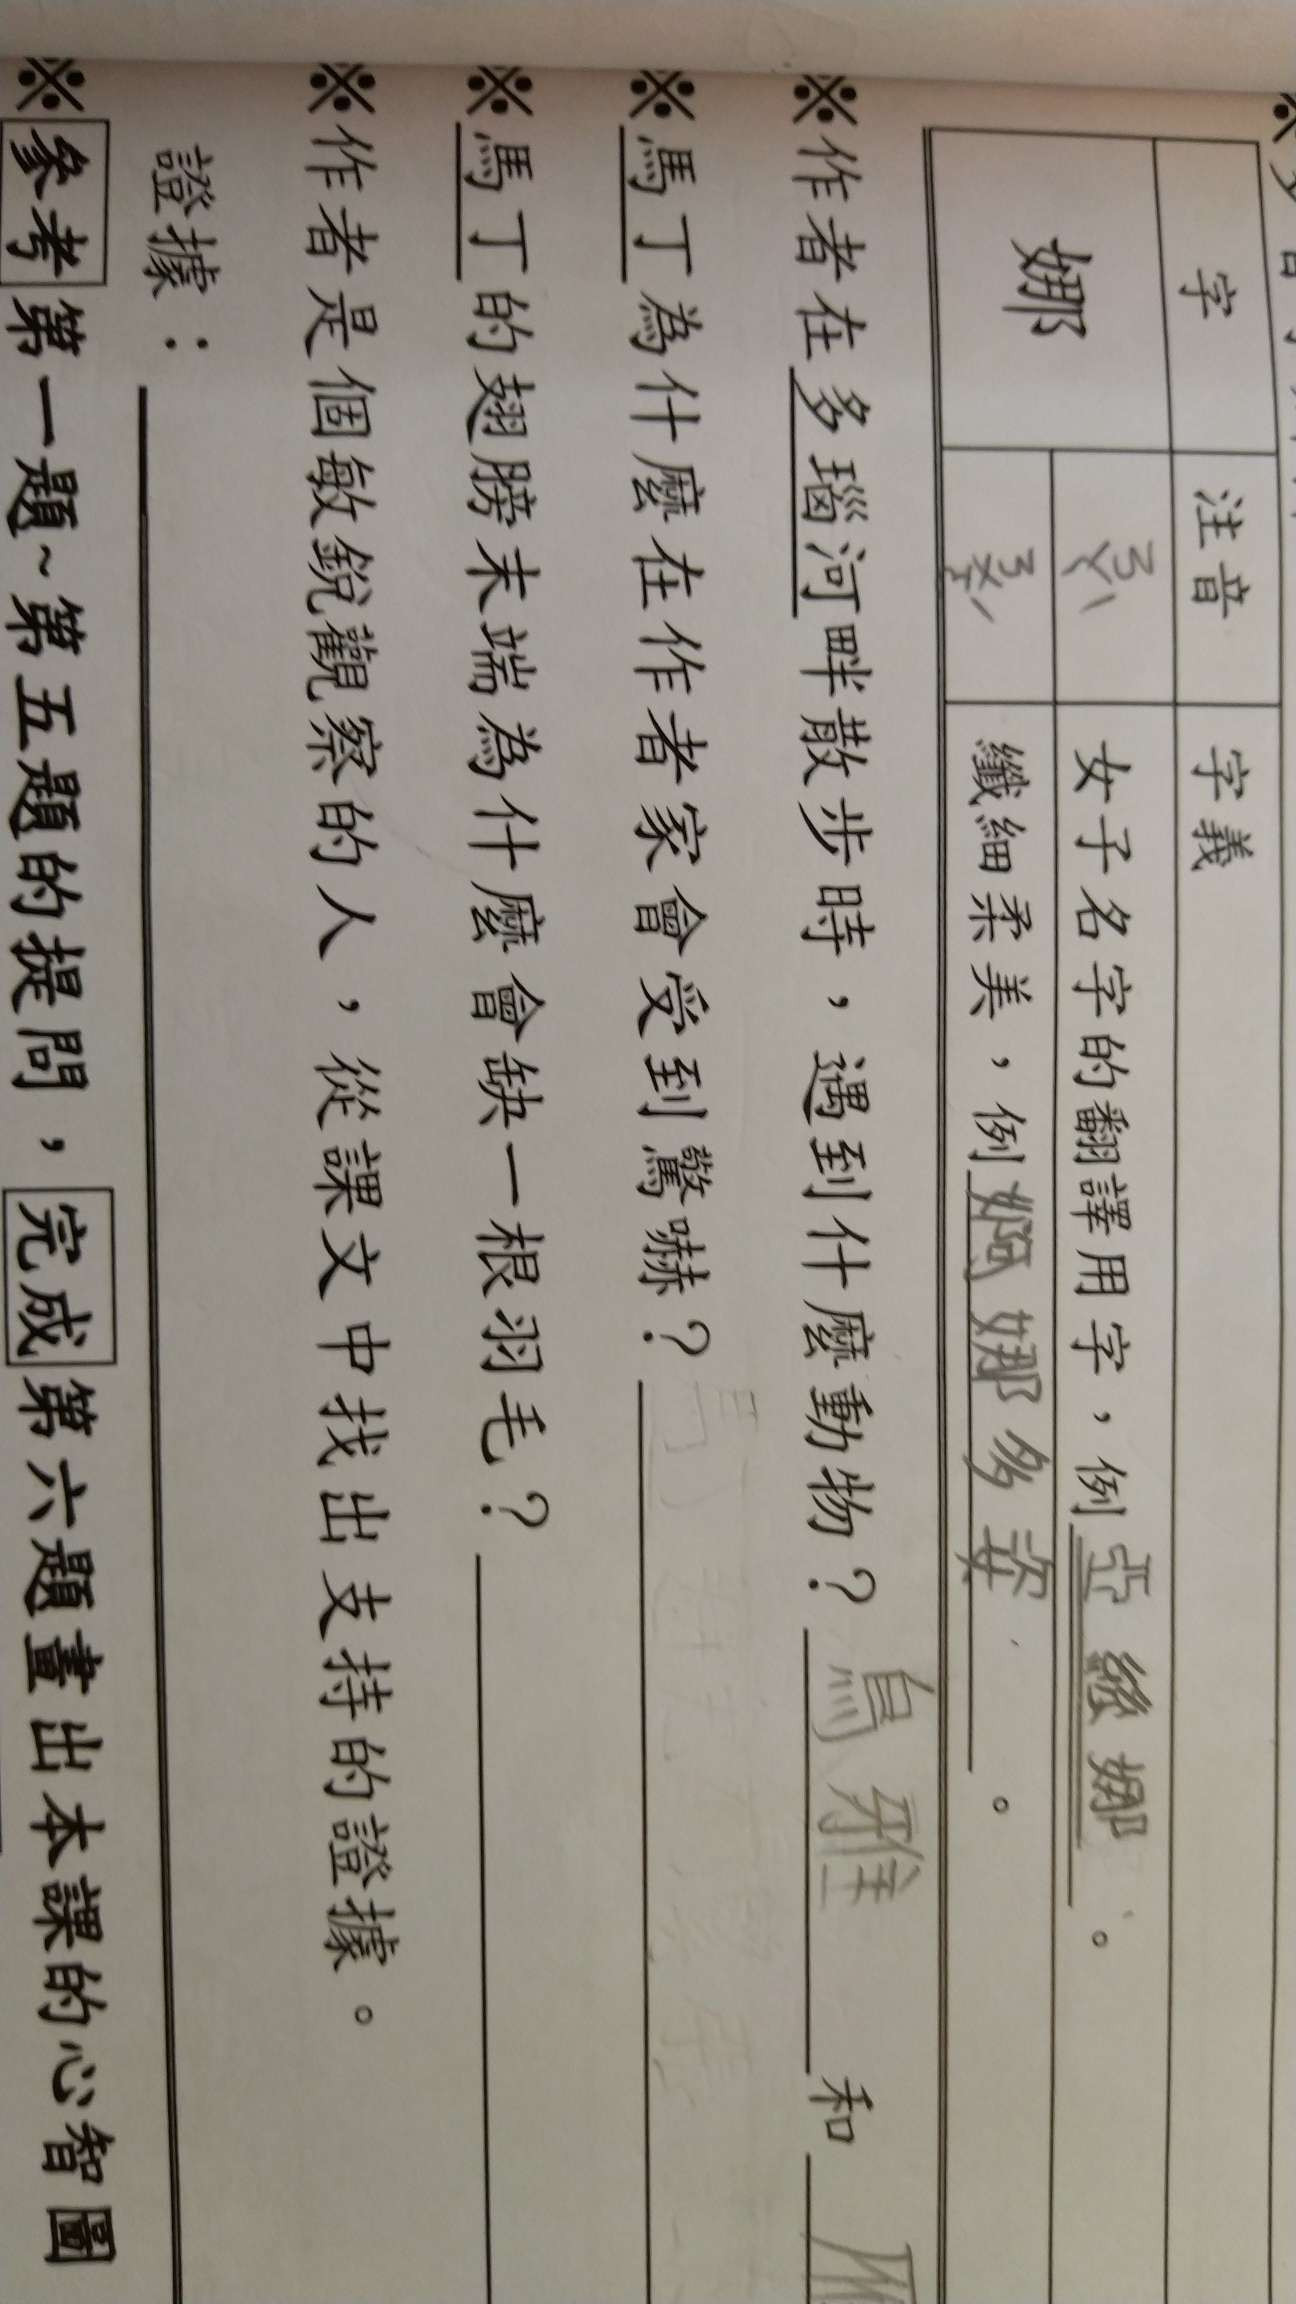 字 注音 字義
娜 ㄋㄚˋ 女子名字的翻譯用字，例亞絲娜。
ㄋㄨㄛˊ 纖細柔美，例婀娜多姿。
※作者在多瑙河畔散步時，遇到什麼動物？烏鴉 和
※馬丁為什麼在作者家會受到驚嚇？
※馬丁的翅膀末端為什麼會缺一根羽毛？
※作者是個敏銳觀察的人，從課文中找出支持的證據。
證據：
※參考第一題~第五題的提問，完成第六題畫出本課的心智圖